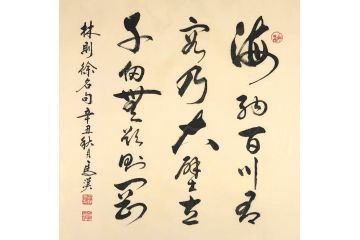 海納百川有
容乃大壁立
千仞無欲則剛
林則徐名句辛丑秋月